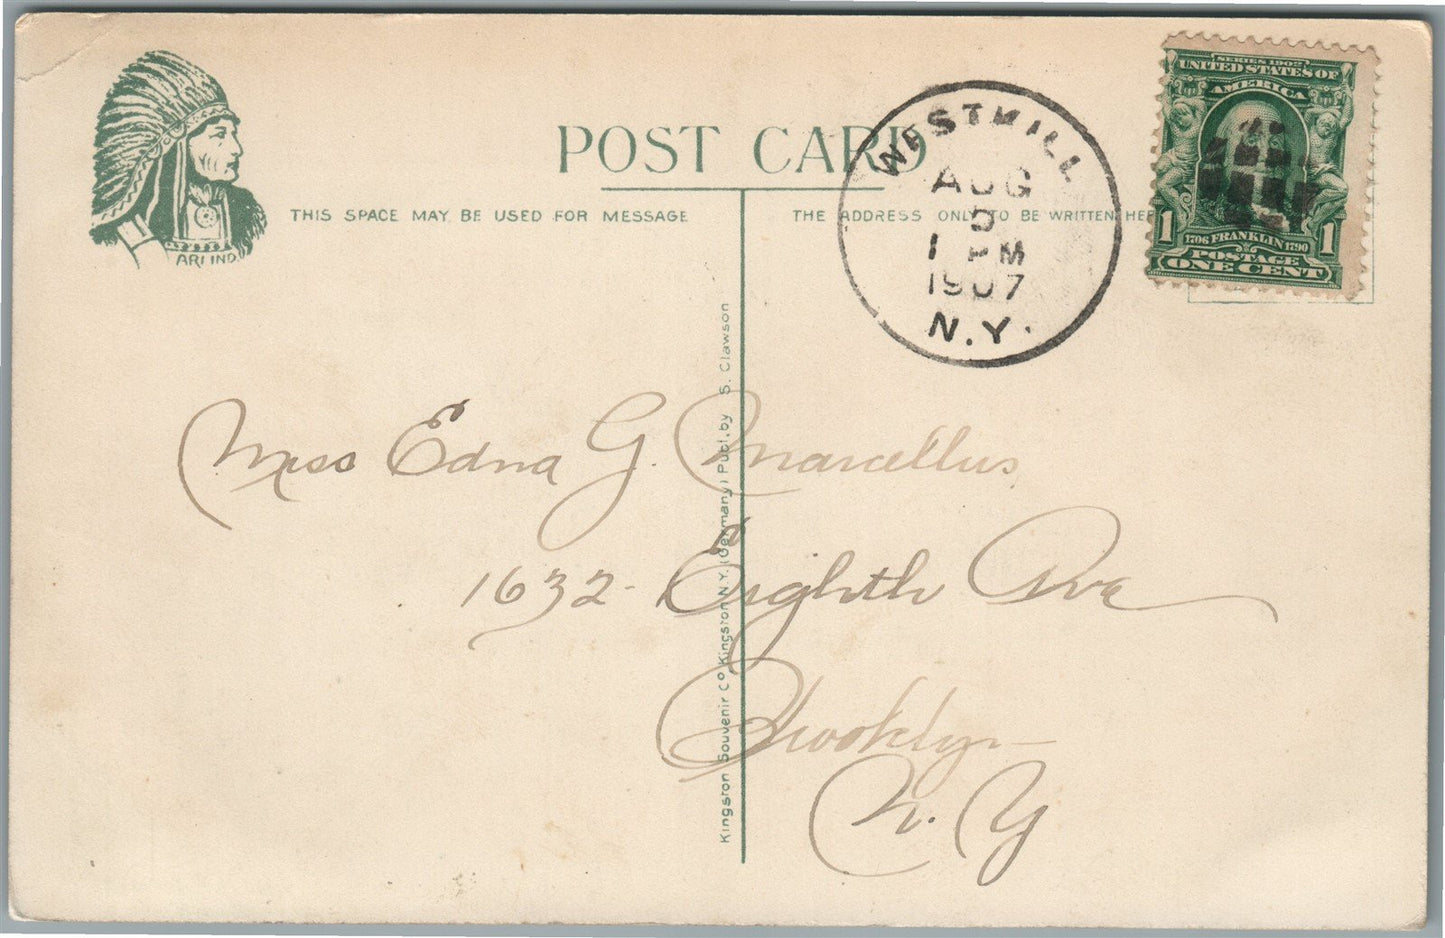 POST CARD
THIS SPACE MAY BE USED FOR MESSAGE
THE ADDRESS ONLY TO BE WRITTEN HE
ARI IND.
WESTKILL
AUG
1 PM
1907
N.Y.
SERIES 1902
UNITED STATES OF
AMERICA
1 1706 FRANKLIN 1790 1
POSTAGE
ONE CENT
Miss Edna G. Marcellus
1632 - Eighth Ave
Brooklyn
N. Y
Kingston Souvenir Co Kingston N.Y. (Germany) Publ. by S. Clawson